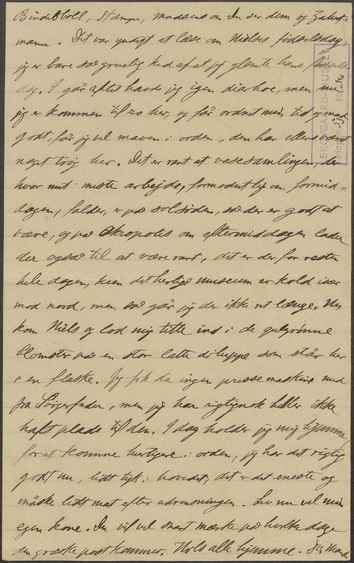 Bindesböll, Stampe, madsens om Du ser dem og Zahrt-
mann. Det var yndigt at læse om Nielses fødselsdag,
jeg er bare så grulig ked af at jeg glemte hans fødsels-
dag. I går aftes havde jeg igen diarhoe, men nu
jeg er kommen til ro her, og får ordnet min tid og mad
godt, får jeg vel maven i orden, den har ellers været
noget træg her. Det er rart at vasesamlingen, der
hvor mit meste arbejde, formodentlig om formid-
dagen, falder, er på solsiden, så der er godt at
være, og på Akropolis om eftermiddagen lader
der også til at være rart, det er der for resten
hele dagen, kun det herlige museum er kold især
mod nord, men så går jeg der ikke ret længe. Nu
kom Niels og lod mig titte ind i de gulgrønne
blomster på en stor
i en flaske. Jeg fik da ingen presse maskine med
fra Sørgenfader, men jeg har rigtignok heller ikke
haft plads til den. I dag holder jeg mig hjemme
for at komme hurtigere i orden, jeg har det rigtig
godt nu, lidt tyk i hovedet, det er det meste og
måske lidt mat efter udrensningen. Lev nu vel min
egen kone. Du vil vel snart mærke på hvilke dage
den græske post kommer. Hils alle hjemme. Din Mand